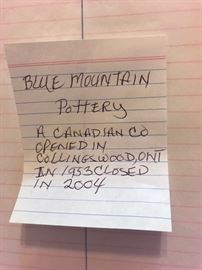 BLUE MOUNTAIN
POTTERY
A CANADIAN CO
OPENED IN
COLLINGSWOOD, ONT
IN 1953 CLOSED
IN 2004